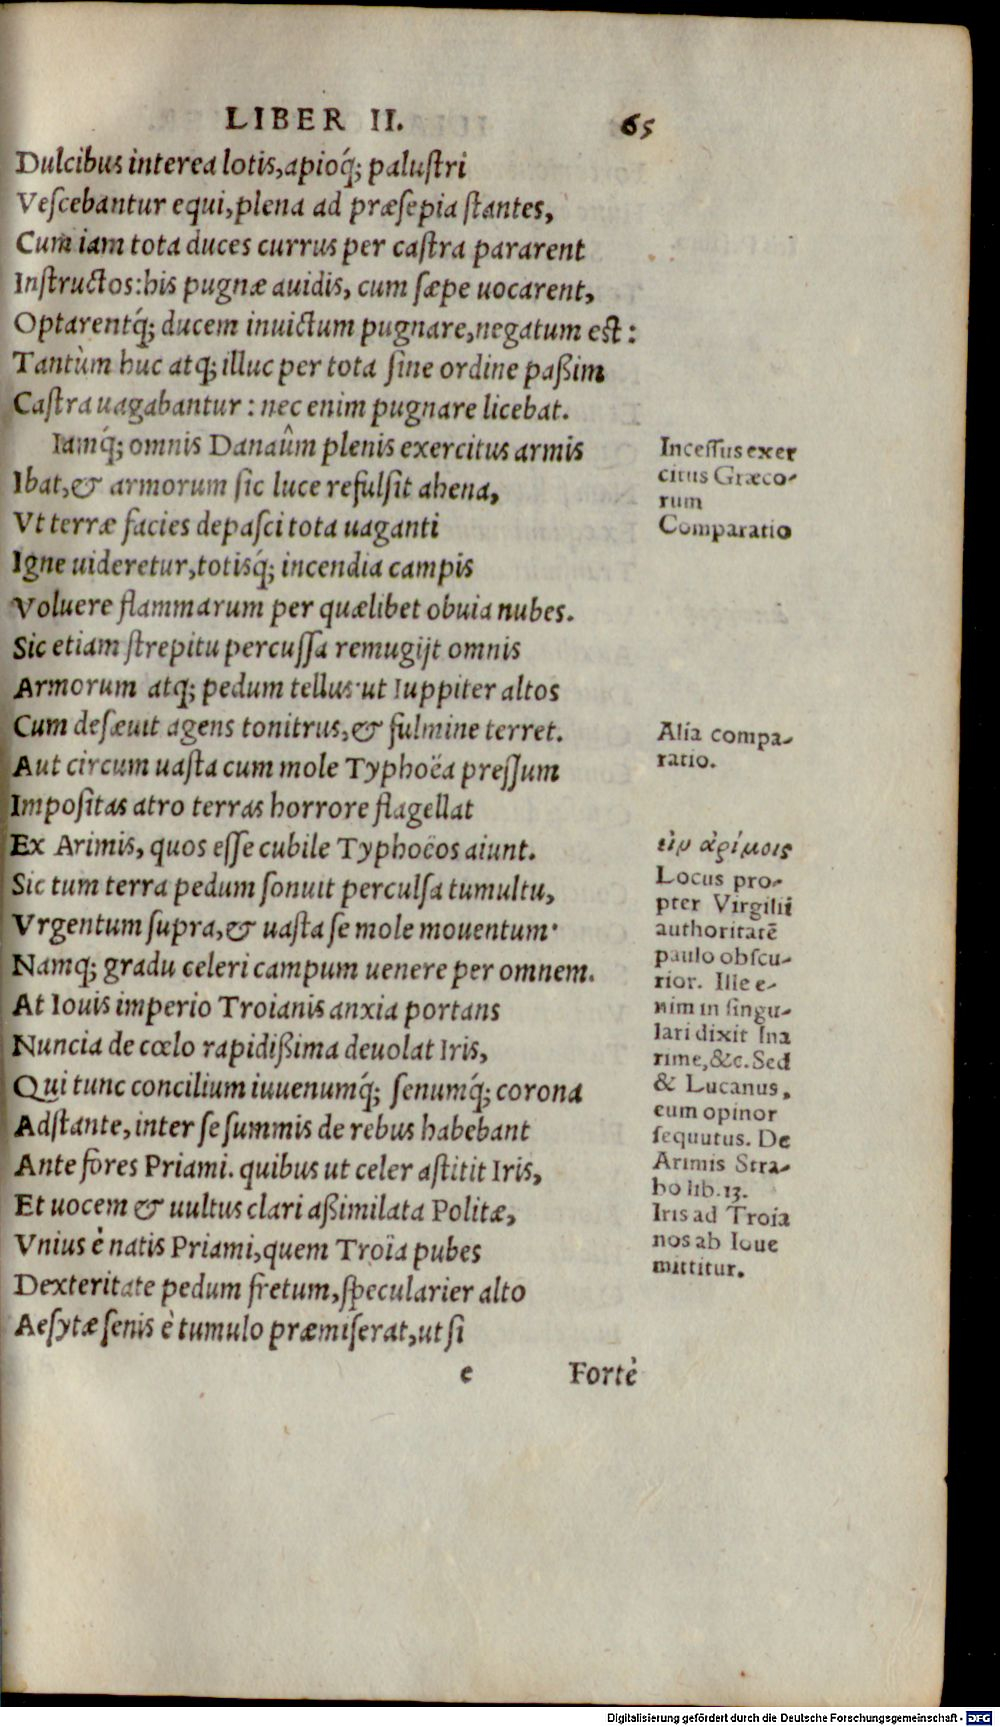 LIBER II. 65
Dulcibus interea lotis, apioq́; palustri
Vescebantur equi, plena ad præsepia stantes,
Cum iam tota duces currus per castra pararent
Instructos: his pugnæ auidis, cum sæpe uocarent,
Optarentq́; ducem inuictum pugnare, negatum est:
Tantùm huc atq; illuc per tota sine ordine paßim
Castra uagabantur: nec enim pugnare licebat.
Iamq́; omnis Danaûm plenis exercitus armis
Ibat, & armorum sic luce refulsit ahena,
Vt terræ facies depasci tota uaganti
Igne uideretur, totisq́; incendia campis
Voluere flammarum per quælibet obuia nubes.
Sic etiam strepitu percussa remugijt omnis
Armorum atq; pedum tellus· ut Iuppiter altos
Cum desæuit agens tonitrus, & fulmine terret.
Aut circum uasta cum mole Typhoëa pressum
Impositas atro terras horrore flagellat
Ex Arimis, quos esse cubile Typhoëos aiunt.
Sic tum terra pedum sonuit perculsa tumultu,
Vrgentum supra, & uasta se mole mouentum·
Namq; gradu celeri campum uenere per omnem.
At Iouis imperio Troianis anxia portans
Nuncia de cœlo rapidißima deuolat Iris,
Qui tunc concilium iuuenumq́; senumq́; corona
Adstante, inter se summis de rebus habebant
Ante fores Priami. quibus ut celer astitit Iris,
Et uocem & uultus clari aßimilata Politæ,
Vnius è natis Priami, quem Troïa pubes
Dexteritate pedum fretum, specularier alto
Aesytæ senis è tumulo præmiserat, ut si
e Fortè
Incessus exer
citus Græco-
rum
Comparatio
Alia compa-
ratio.
εἰν ἀρίμοις
Locus pro-
pter Virgilii
authoritatē
paulo obscu-
rior. Ille e-
nim in singu-
lari dixit Ina
rime, &c. Sed
& Lucanus,
eum opinor
sequutus. De
Arimis Stra-
bo lib. 13.
Iris ad Troia
nos ab Ioue
mittitur.
Digitalisierung gefördert durch die Deutsche Forschungsgemeinschaft - DFG